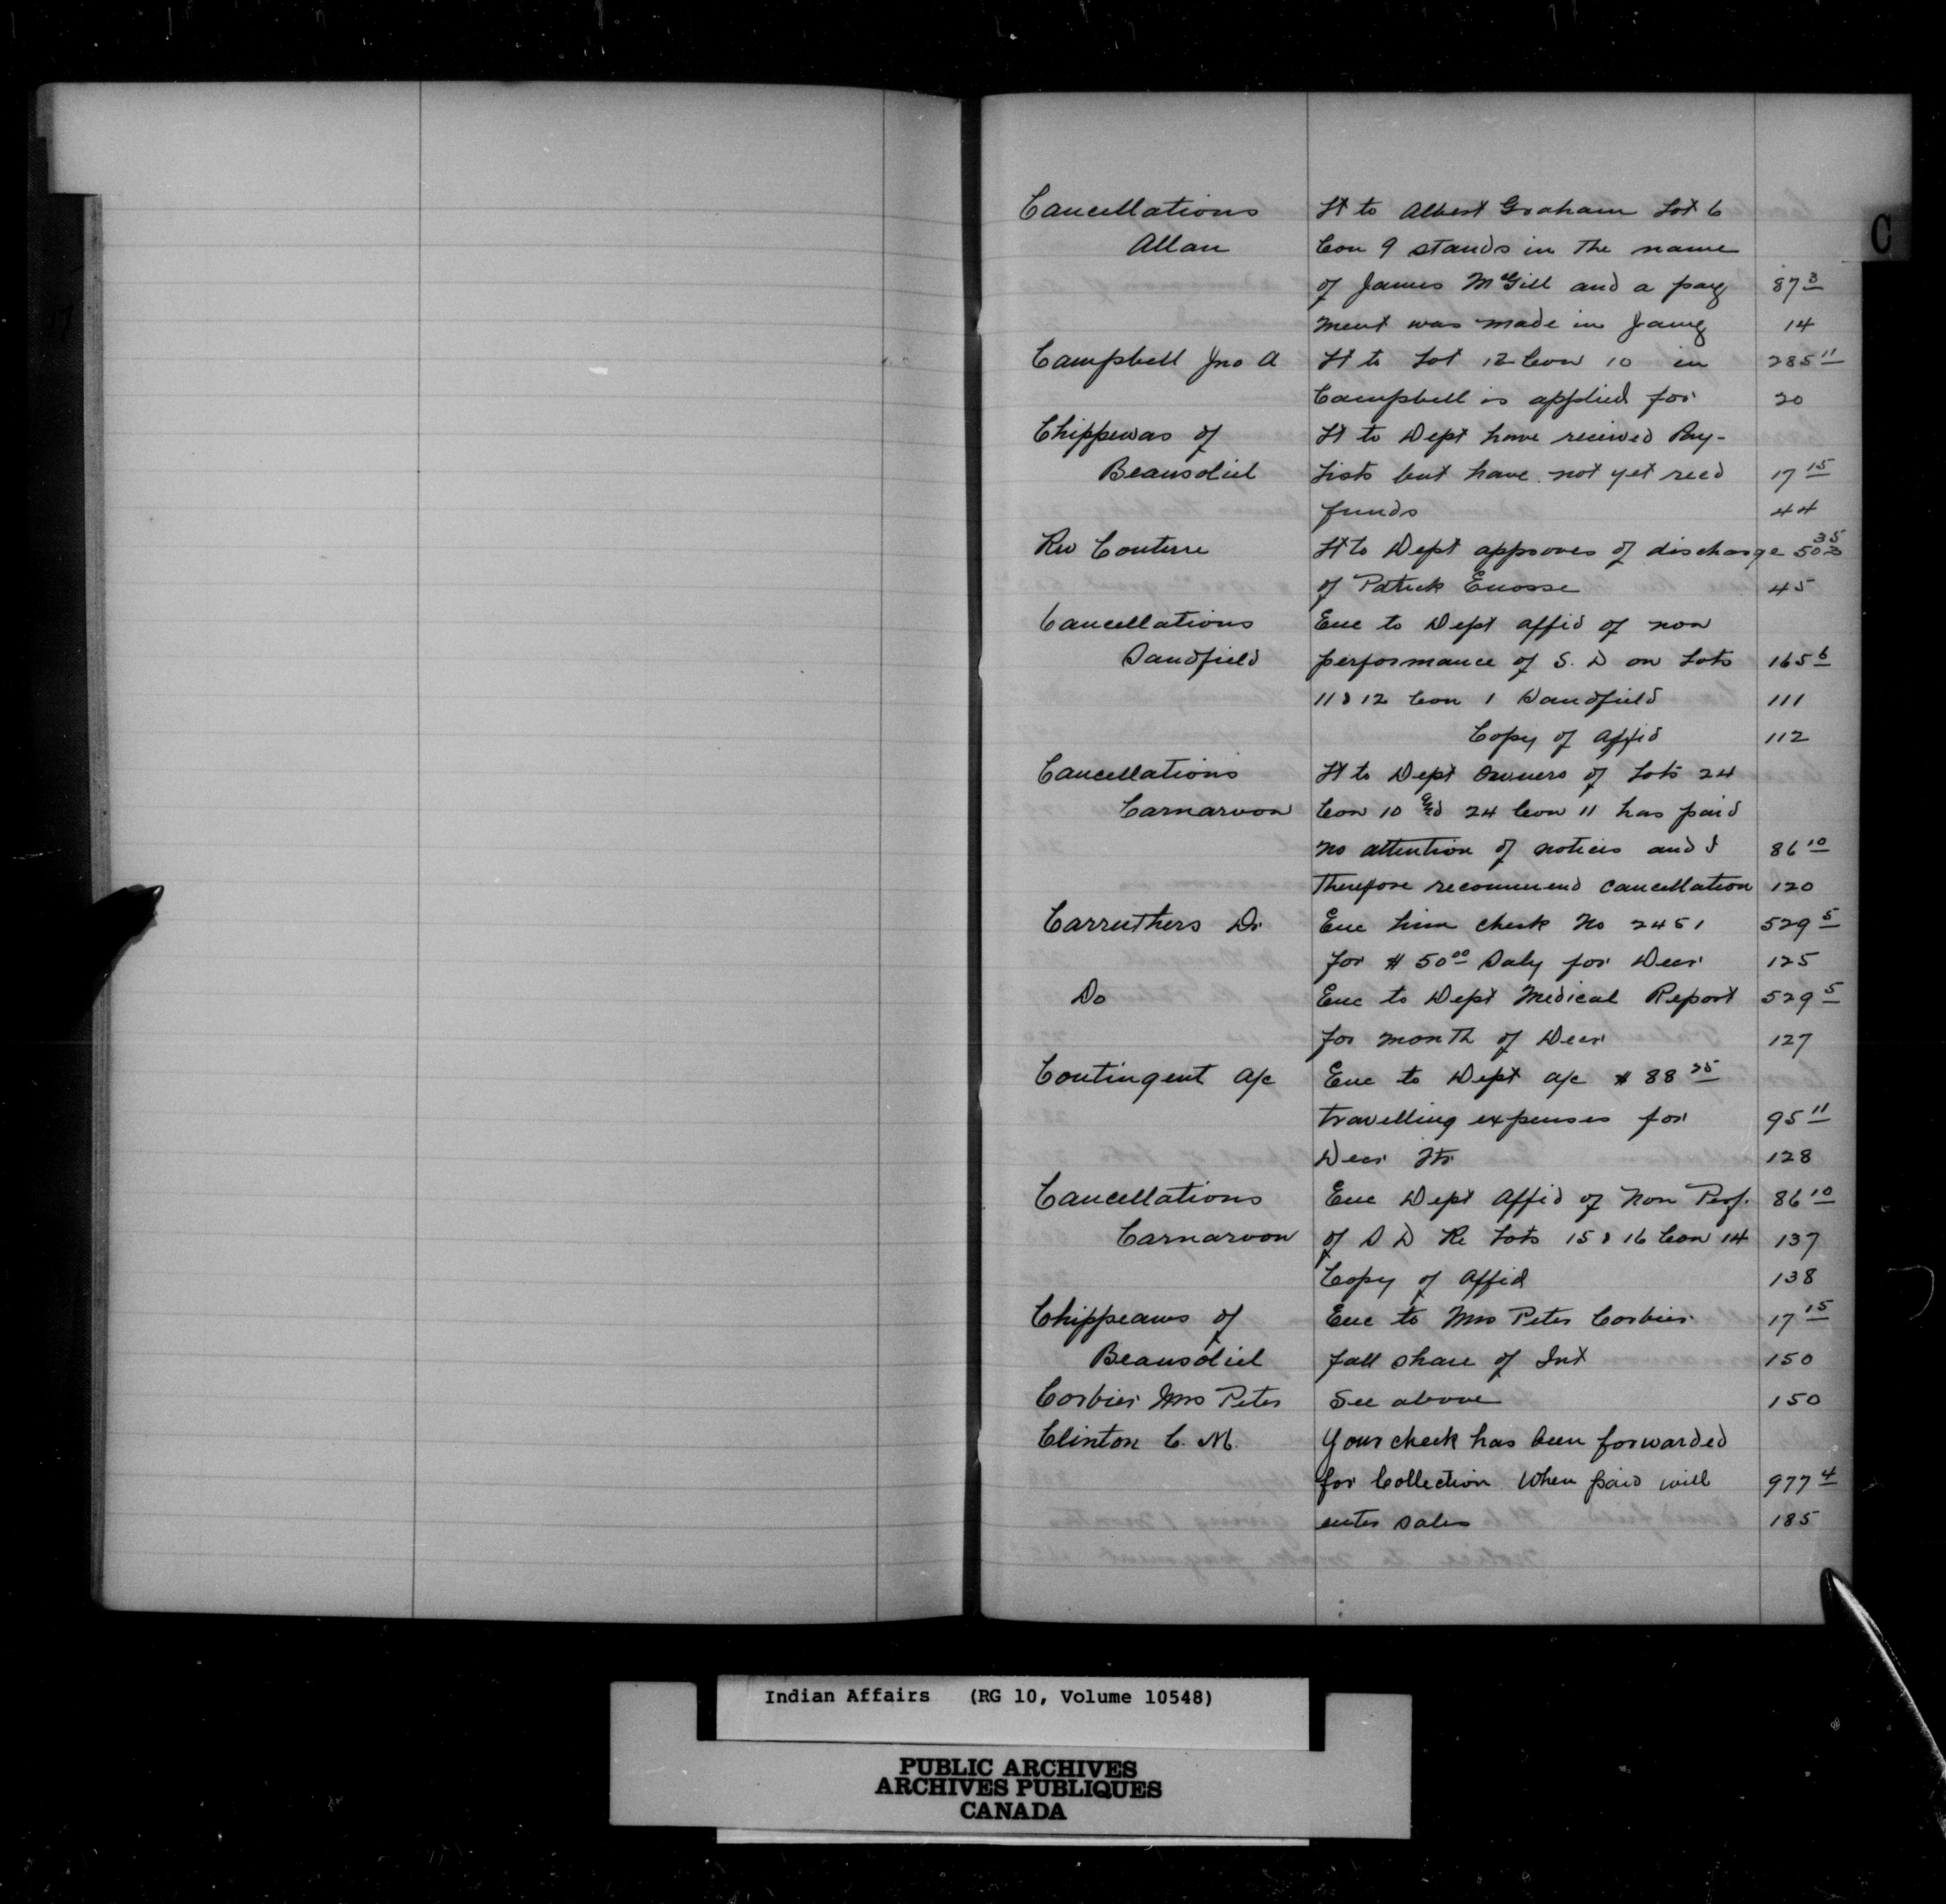 C
Cancellations Lt to Albert Graham Lot 6
Allan Con 9 stands in the name
of James McGill and a pay 87 3
ment was made in Jany 14
Campbell Jno A Lt to Lot 12 Con 10 in 285 11
Campbell is applied for 20
Chippewas of Lt to Dept have recieved Pay-
Beausoliel Lists but have not yet recd 17 15
funds 44
Rev Couture Lt to Dept approves of discharge 503 35
of Patrick Enosse 45
Cancellations Enc to Dept Affid of non
Sandfield performance of S. D on Lots 165 6
11 & 12 Con 1 Sandfield 111
Copy of Affid 112
Cancellations Lt to Dept Owners of Lots 24
Carnarvon Con 10 and 24 Con 11 has paid
no attention of notices and I 86 10
therefore recommend cancellation 120
Carruthers Dr Enc him check No 2451 529 5
for $ 50 00 Saly for Decr 125
Do Enc to Dept Medical Report 529 5
for month of Decr 127
Contingent a/c Enc to Dept a/c $ 88 25
travelling expenses for 95 11
Decr 128
Cancellations Enc Dept Affid of Non Perf. 86 10
Carnarvon of S D Re Lots 15 & 16 Con 14 137
Copy of Affid 138
Chippeaws of Enc to Mrs Peter Corbier 17 15
Beausoliel fall share of Int 150
Corbier Mrs Peter See above 150
Clinton C. M. Your check has been forwarded
for Collection When paid will 977 4
enter sales 185
Indian Affairs (RG 10, Volume 10548)
PUBLIC ARCHIVES
ARCHIVES PUBLIQUES
CANADA